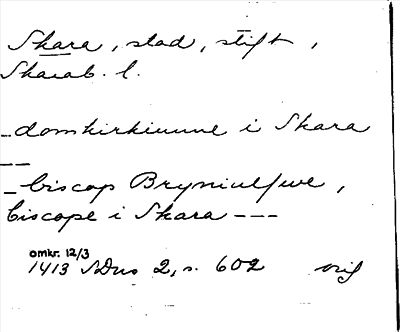 Skara, stad, stift,
Skarab. l.
_domkirkiunne i Skara
__
_biscop Bryniulfwe,
biscope i Skara ---
omkr. 12/3
1413 SDns 2, s. 602 orig